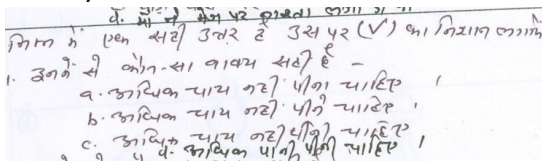 घ. माँ ने मेज पर नाश्ता लगा
निम्न में एक सही उत्तर है उस पर (√) का निशान लगायें
1. इनमें से कौन-सा वाक्य सही है –
a. अधिक चाय नहीं पीना चाहिए ।
b. अधिक चाय नहीं पीने चाहिए ।
c. अधिक चाय नहीं पीनी चाहिए
d. अधिक पानी पीनी चाहिए ।